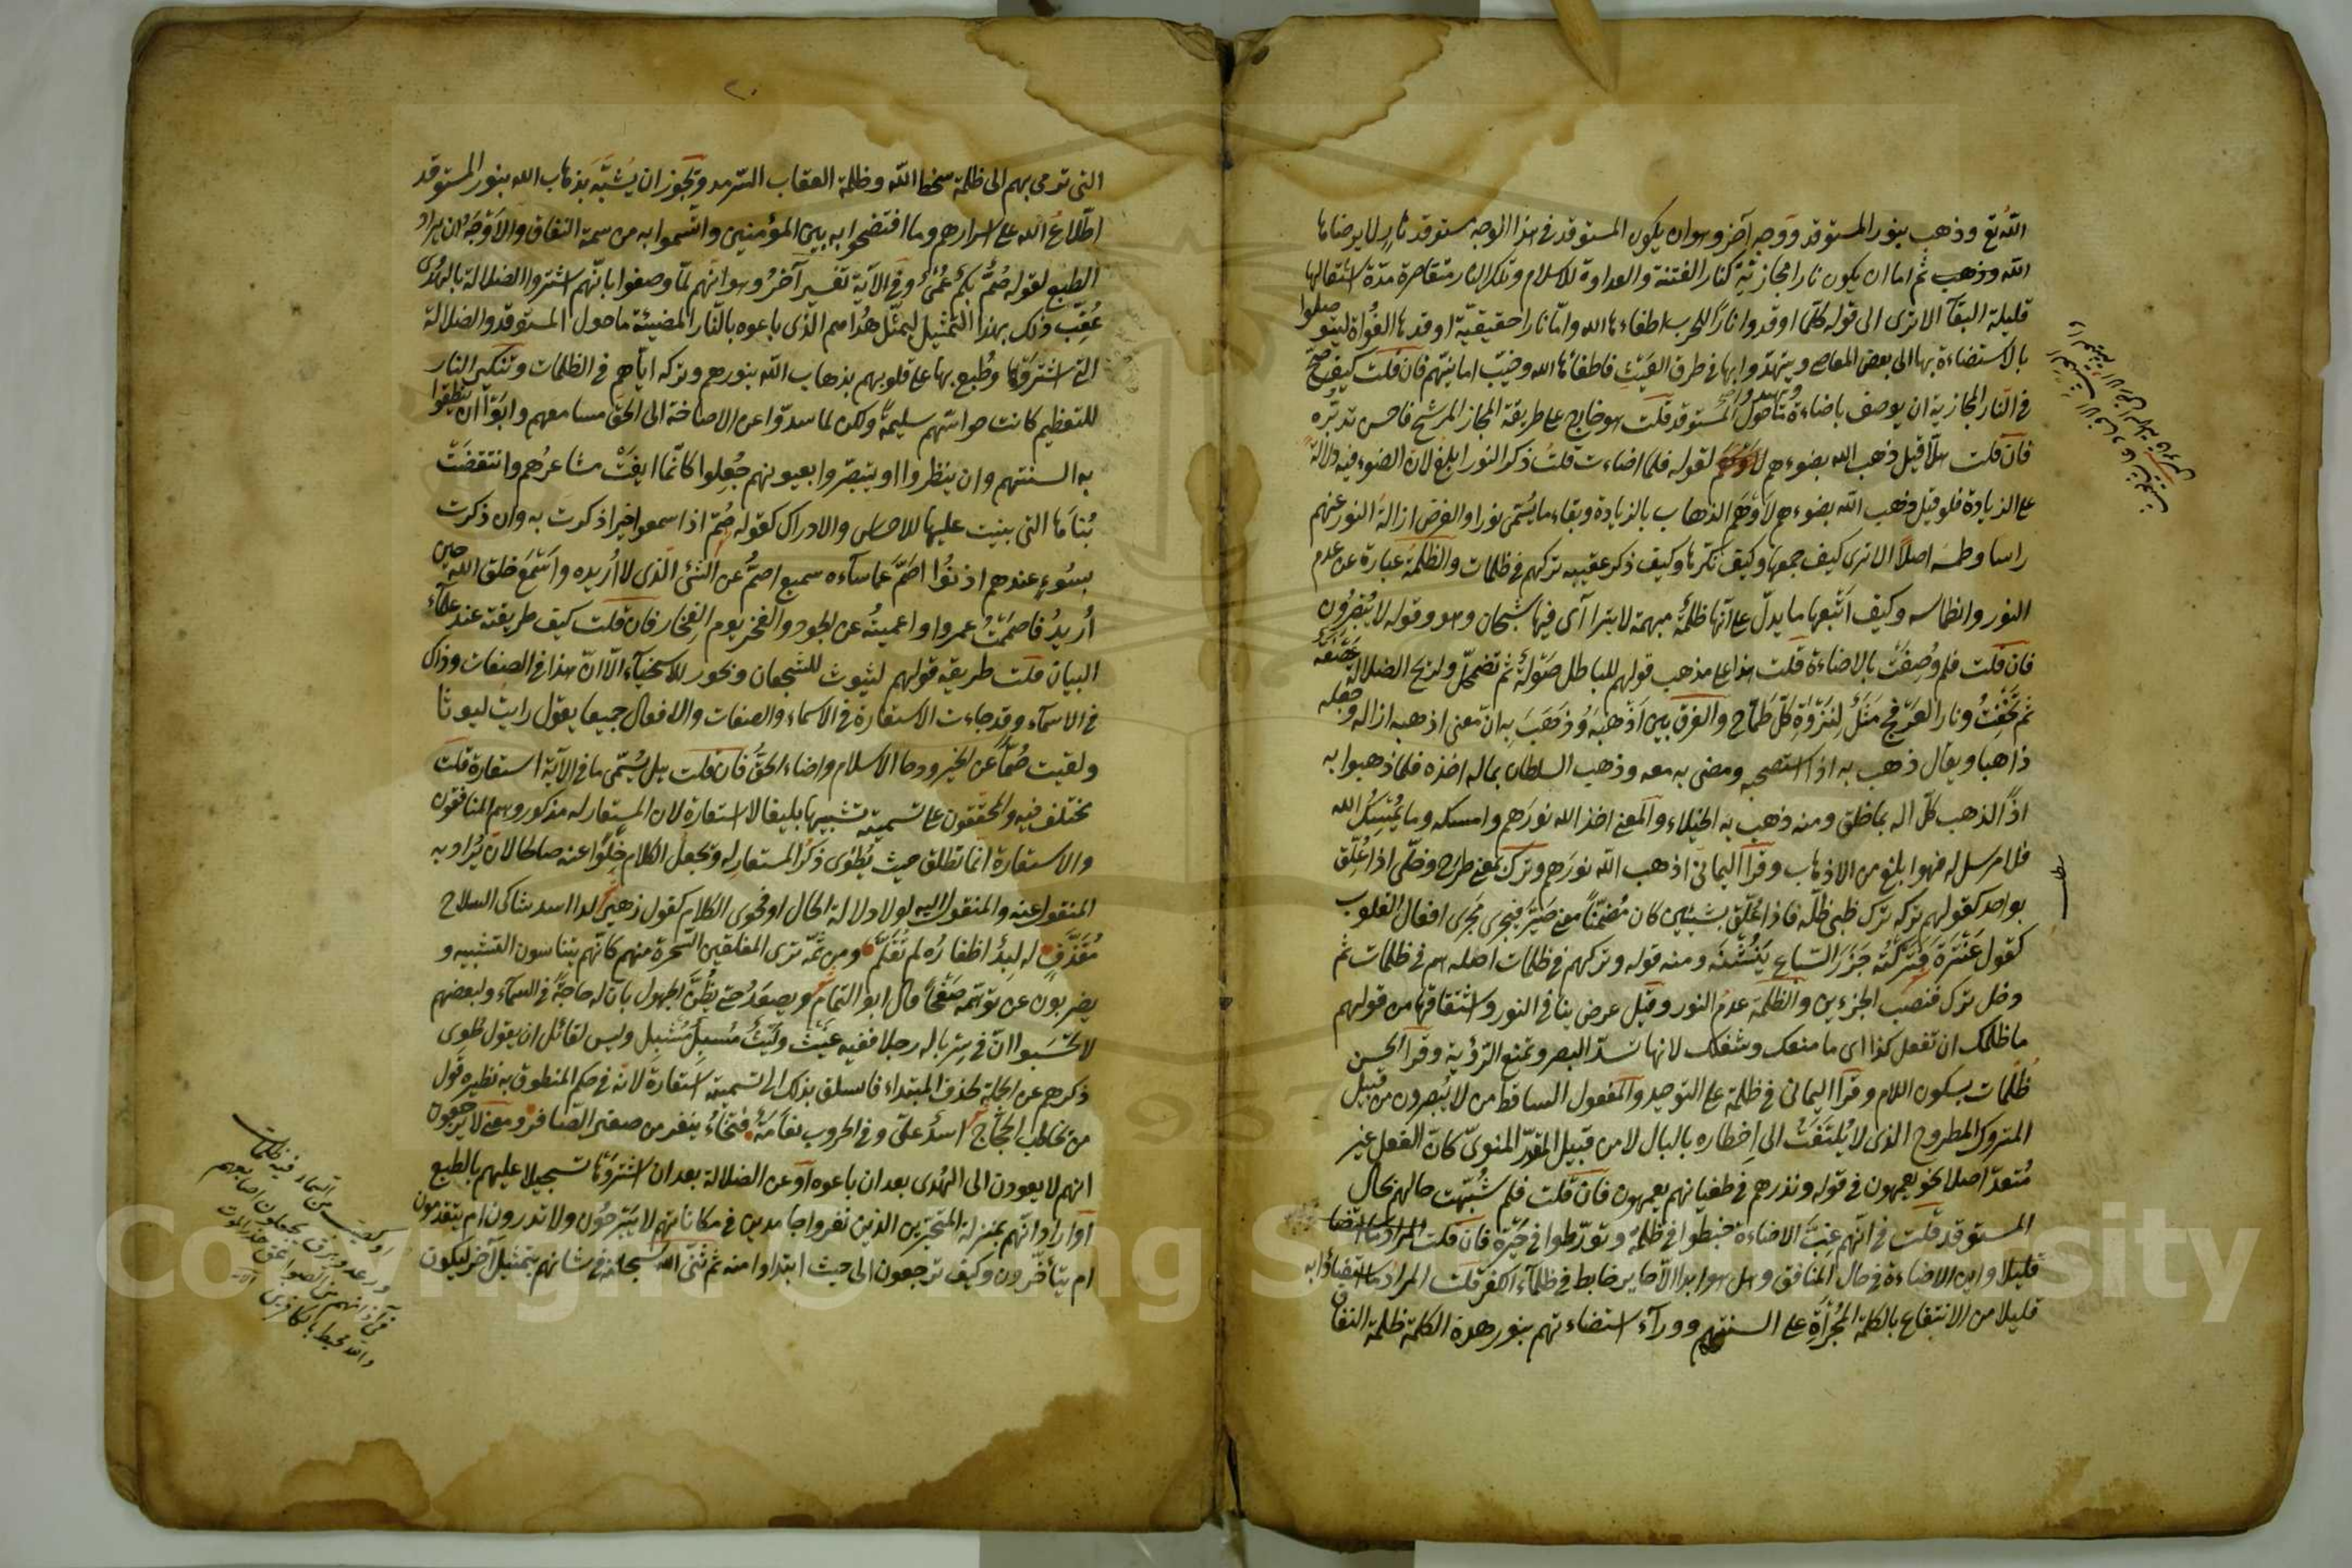 الله تع وذهب بنور المستوقد ووجه آخر وهو ان يكون المستوقد في هذا الوجه مستوقد نار لا يرضاها
الله وذهب ثم اما ان يكون نارا مجازية كنار الفتنة والعداوة للاسلام وتلك النار متقاصرة مدة اشتعالها
قليلة البقآ الا ترى الى قوله كلما اوقدوا نارا للحرب اطفاءها الله واما نارا حقيقية اوقدها الغواة ليتوصلوا
بالاستضاءة بها الى بعض المعاصي ويتهدوا بها في طرق العيث فاطفأها الله وخيب امانيهم فان قلت كيف صح
في النار المجازية ان يوصف باضاءة ما حول المستوقد قلت هو خارج على طريقة المجاز المرشح فاحسن تدبره
فان قلت هلا قيل ذهب الله بضوءهم لقوله فلما اضاءت قلت ذكر النور ابلغ لان الضوء فيه دلالة
على الزيادة فلو قيل ذهب الله بضوءهم لاوهم الذهاب بالزيادة وبقاء ما يسمى نورا والغرض ازالة النور عنهم
راسا وطمسه اصلا الا ترى كيف ذكر عقيبه تركهم في ظلمات والظلمة عبارة عن عدم
النور وانطماسه وكيف جمعها وكيف نكرها وكيف اتبعها ما يدل على انها ظلمة مبهمة لا يترا آى فيها شبحان وهو وقوله لا يبصرون
فان قلت فلم وصفت بالاضاءة قلت هذا على مذهب قولهم للباطل صولة ثم تضمحل ولريح الضلالة عصفة
ثم تخفت ونار العرفج مثل لنزوة كل طماح والفرق بين اذهبه وذهب به ان معنى اذهبه ازاله وجعله
ذاهبا ويقال ذهب به اذا استصحبه ومضى به معه وذهب السلطان بماله اخذه فلما ذهبوا به
اذا لذهب كل اله بما خلق ومنه ذهب به الخيلاء والمعنى اخذ الله نورهم وامسكه وما يمسك الله
فلا مرسل له فهو ابلغ من الاذهاب وقرأ اليماني اذهب الله نورهم وترك بمعنى طرح وخلى اذا علق
بواحد كقولهم تركه ترك ظبي ظله فاذا علق بشيئين كان مضمنا معنى صير فيجرى مجرى افعال القلوب
كقول عنترة فتركته جزر السباع ينشنه ومنه قوله وتركهم في ظلمات اصله هم في ظلمات ثم
دخل ترك فنصب الجزءين والظلمة عدم النور وقيل عرض ينافي النور واشتقاقها من قولهم
ما ظلمك ان تفعل كذا اى ما منعك وشغلك لانها تسد البصر وتمنع الرؤية وقرأ الحسن
ظلمات بسكون اللام وقرأ اليماني في ظلمة على التوحيد والمفعول الساقط من لا يبصرون من قبيل
المتروك المطروح الذى لا يلتفت الى اخطاره بالبال لا من قبيل المقدر المنوى كان الفعل غير
متعد اصلا نحو يعمهون في قوله ونذرهم في طغيانهم يعمهون فان قلت فلم شبهت حالهم بحال
المستوقد قلت في انهم غب الاضاءة خبطوا في ظلمة وتورطوا في حيرة فان قلت
قليلا واين الاضاءة في حال المنافق وهل هو ابدا الا حاير خابط في ظلمآء الكفر قلت المراد ما استضاؤا به
قليلا من الانتفاع بالكلمة المجراة على السنتهم ووراء استضاءتهم بنور هذه الكلمة ظلمة النفاق
التي ترمي بهم الى ظلمة سخط الله وظلمة العقاب السرمد ويجوز ان يشبه بذهاب الله بنور المستوقد
اطلاع الله على اسرارهم وما افتضحوا به بين المؤمنين واتسموا به من سمة النفاق والاوجه ان يراد
الطبع لقوله صم بكم عمي وفي الآية تفسير آخر وهو انهم لما وصفوا بانهم اشتروا الضلالة بالهدى
عقب ذلك بهذا التمثيل ليمثل هداهم الذى باعوه بالنار المضيئة ما حول المستوقد والضلالة
التي اشتروها وطبع بها على قلوبهم بذهاب الله بنورهم وتركه اياهم في الظلمات وتنكير النار
للتعظيم كانت حواسهم سليمة ولكن لما سدوا عن الاصاخة الى الحق مسامعهم وابوا ان ينطقوا
به السنتهم وان ينظروا او يتبصروا بعيونهم جعلوا كانما ايفت مشاعرهم وانتقضت
بناها التي بنيت عليها للاحساس والادراك كقوله صم اذا سمعوا خيرا ذكرت به وان ذكرت
بسوء عندهم اذنوا اصم عما ساءه سميع اصم عن الشئ الذى لا اريده واسمع خلق الله حين
اريد فاصممت عمروا واعميته عن الجود والفخر يوم الفخار فان قلت كيف طريقته عند علمآء
البيان قلت طريقة قولهم ليوث للشجعان وبحور للاسخياء الا ان هذا في الصفات وذاك
في الاسمآء وقد جاءت الاستعارة في الاسماء والصفات والافعال جميعا يقول رايت ليوثا
ولقيت صما عن الخير ودجا الاسلام واضاء الحق فان قلت هل يسمى ما في الآية استعارة قلت
مختلف فيه والمحققون على تسميته تشبيها بليغا لا استعارة لان المستعار له مذكور وهم المنافقون
والاستعارة انما تطلق حيث يطوى ذكر المستعار له ويجعل الكلام خلوا عنه صالحا لان يراد به
المنقول عنه والمنقول اليه لولا دلالة الحال او فحوى الكلام كقول زهير لدا اسد شاكي السلاح
مقذف له لبد اظفاره لم تقلم ومن ثمه ترى المفلقين السحرة منهم كانهم يتناسون التشبيه و
يضربون عن توهمه صفحا قال ابو التمام ويصعد حتى يظن الجهول بان له حاجة في السمآء ولبعضهم
لا تحسبوا ان في سرباله رجلا ففيه غيث وليث مسبل مشبل وليس لقائل ان يقول طوى
ذكرهم عن الجملة بحذف المبتداء فاتسلق بذلك الى تسميته استعارة لانه في حكم المنطوق به نظيره قول
من يخاطب الحجاج اسد علي وفي الحروب نعامة فتخاء ينفر من صفير الصافر ومعنى لا يرجعون
انهم لا يعودون الى الهدى بعد ان باعوه او عن الضلالة بعد ان اشتروها تسجيلا عليهم بالطبع
او اراد انهم بمنزلة المتحيرين الذين بقوا جامدين في مكاناتهم لا يبرحون ولا تدرون ام يتقدمون
ام يتأخرون وكيف ترجعون الى حيث ابتداوا منه ثم ثنى الله سبحانه في شانهم بتمثيل آخر ليكون
او كصيب من السماء فيه ظلمات
ورعد وبرق يجعلون اصابعهم
في آذانهم من الصواعق حذر الموت
والله محيط بالكافرين
Copyright © King Saud University
1957